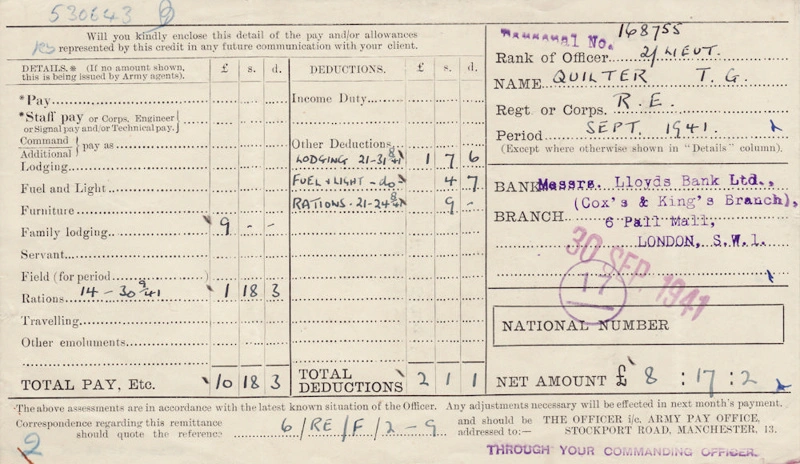 530643
Will you kindly enclose this detail of the pay and/or allowances
represented by this credit in any future communication with your client.
DETAILS.* (If no amount shown, this is being issued by Army agents). £ s. d.
*Pay
*Staff pay or Corps, Engineer or Signal pay and/or Technical pay.
Command Additional pay as
Lodging
Fuel and Light
Furniture
Family lodging 9 - -
Servant
Field (for period)
Rations 14 - 30 9/41 1 18 3
Travelling
Other emoluments
TOTAL PAY, Etc. 10 18 3
DEDUCTIONS. £ s. d.
Income Duty
Other Deductions
LODGING 21-31 8/41 1 7 6
FUEL + LIGHT - do 4 7
RATIONS - 21-24 8/41 9 -
TOTAL DEDUCTIONS 2 1 1
Personal No. 168755
Rank of Officer 2/LIEUT.
NAME QUILTER T. G.
Regt or Corps. R.E.
Period SEPT. 1941.
(Except where otherwise shown in "Details" column).
BANK Messrs. Lloyds Bank Ltd.,
(Cox's & King's Branch),
BRANCH 6 Pall Mall,
LONDON, S.W.1.
30 SEP 1941
17
NATIONAL NUMBER
NET AMOUNT £ 8 : 17 : 2
*The above assessments are in accordance with the latest known situation of the Officer. Any adjustments necessary will be effected in next month's payment.
Correspondence regarding this remittance should quote the reference 6/RE/F/2-9 and should be addressed to:— THE OFFICER i/c. ARMY PAY OFFICE, STOCKPORT ROAD, MANCHESTER, 13.
2
THROUGH YOUR COMMANDING OFFICER.